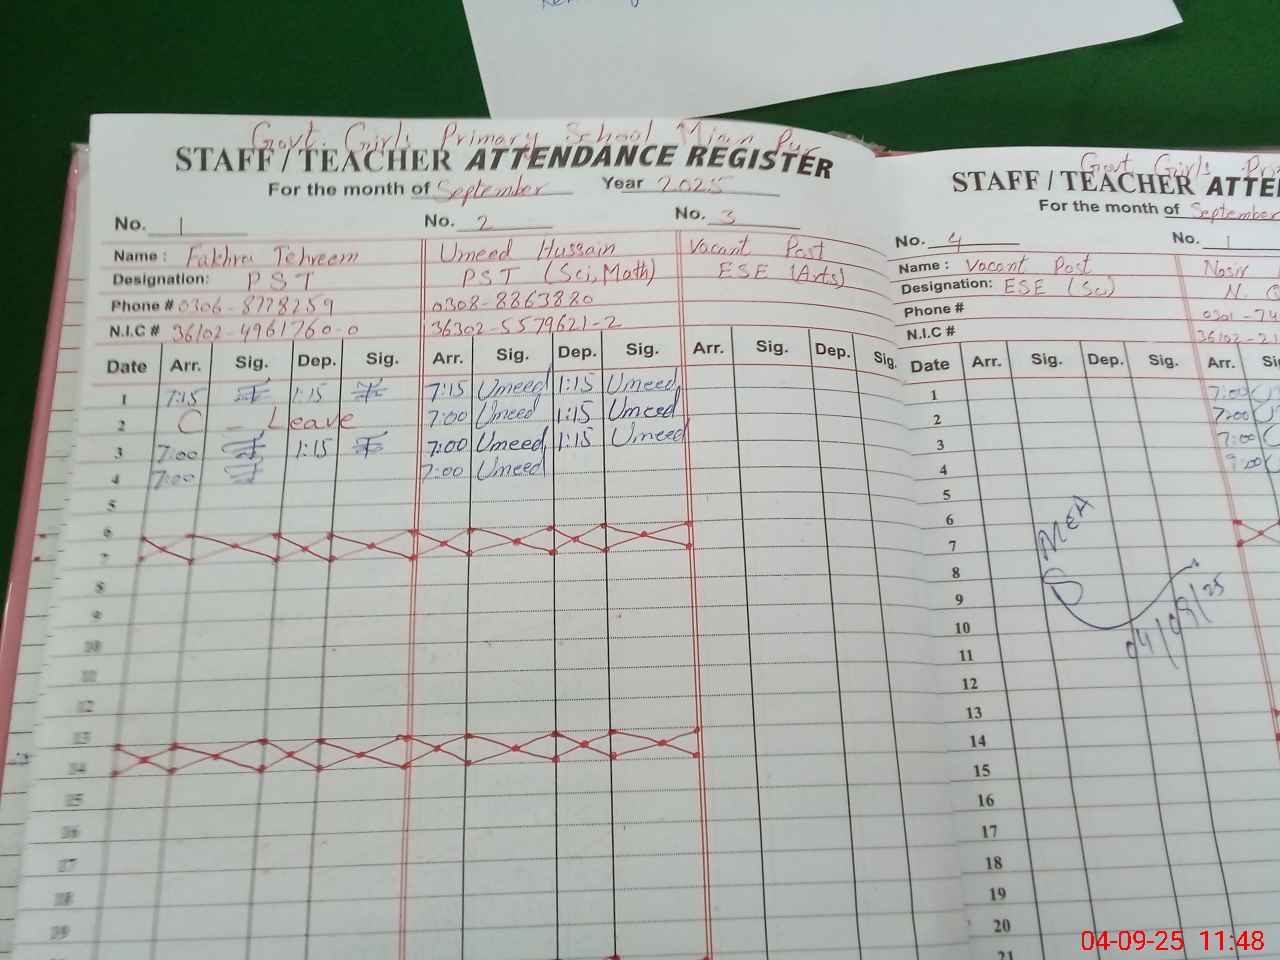 Govt. Girls Primary School Mian Pur
STAFF / TEACHER ATTENDANCE REGISTER
For the month of September Year 2025
No. 1 No. 2 No. 3
Name : Fakhra Tehreem Umeed Hussain Vacant Post
Designation: PST PST (Sci, Math) ESE (Arts)
Phone # 0306-8778259 0308-8863880
N.I.C # 36102-4961760-0 36302-5579621-2
Date Arr. Sig. Dep. Sig. Arr. Sig. Dep. Sig. Arr. Sig. Dep. Sig.
1 7:15 1:15 7:15 Umeed 1:15 Umeed
2 C - Leave 7:00 Umeed 1:15 Umeed
3 7:00 1:15 7:00 Umeed 1:15 Umeed
4 7:00 7:00 Umeed
5
6
7
8
9
10
11
12
13
14
15
16
17
18
19
Govt. Girls
STAFF / TEACHER ATTE
For the month of September
No. 4 No. 1
Name : Vacant Post Nasir
Designation: ESE (Sci) N.
Phone # 0301-74
N.I.C # 36102-21
Date Arr. Sig. Dep. Sig. Arr.
1 7:00
2 7:00
3 7:00
4 9:00
5
6
7
8
9
10
11
12
13
14
15
16
17
18
19
20
21
MEA
04/09/25
04-09-25 11:48